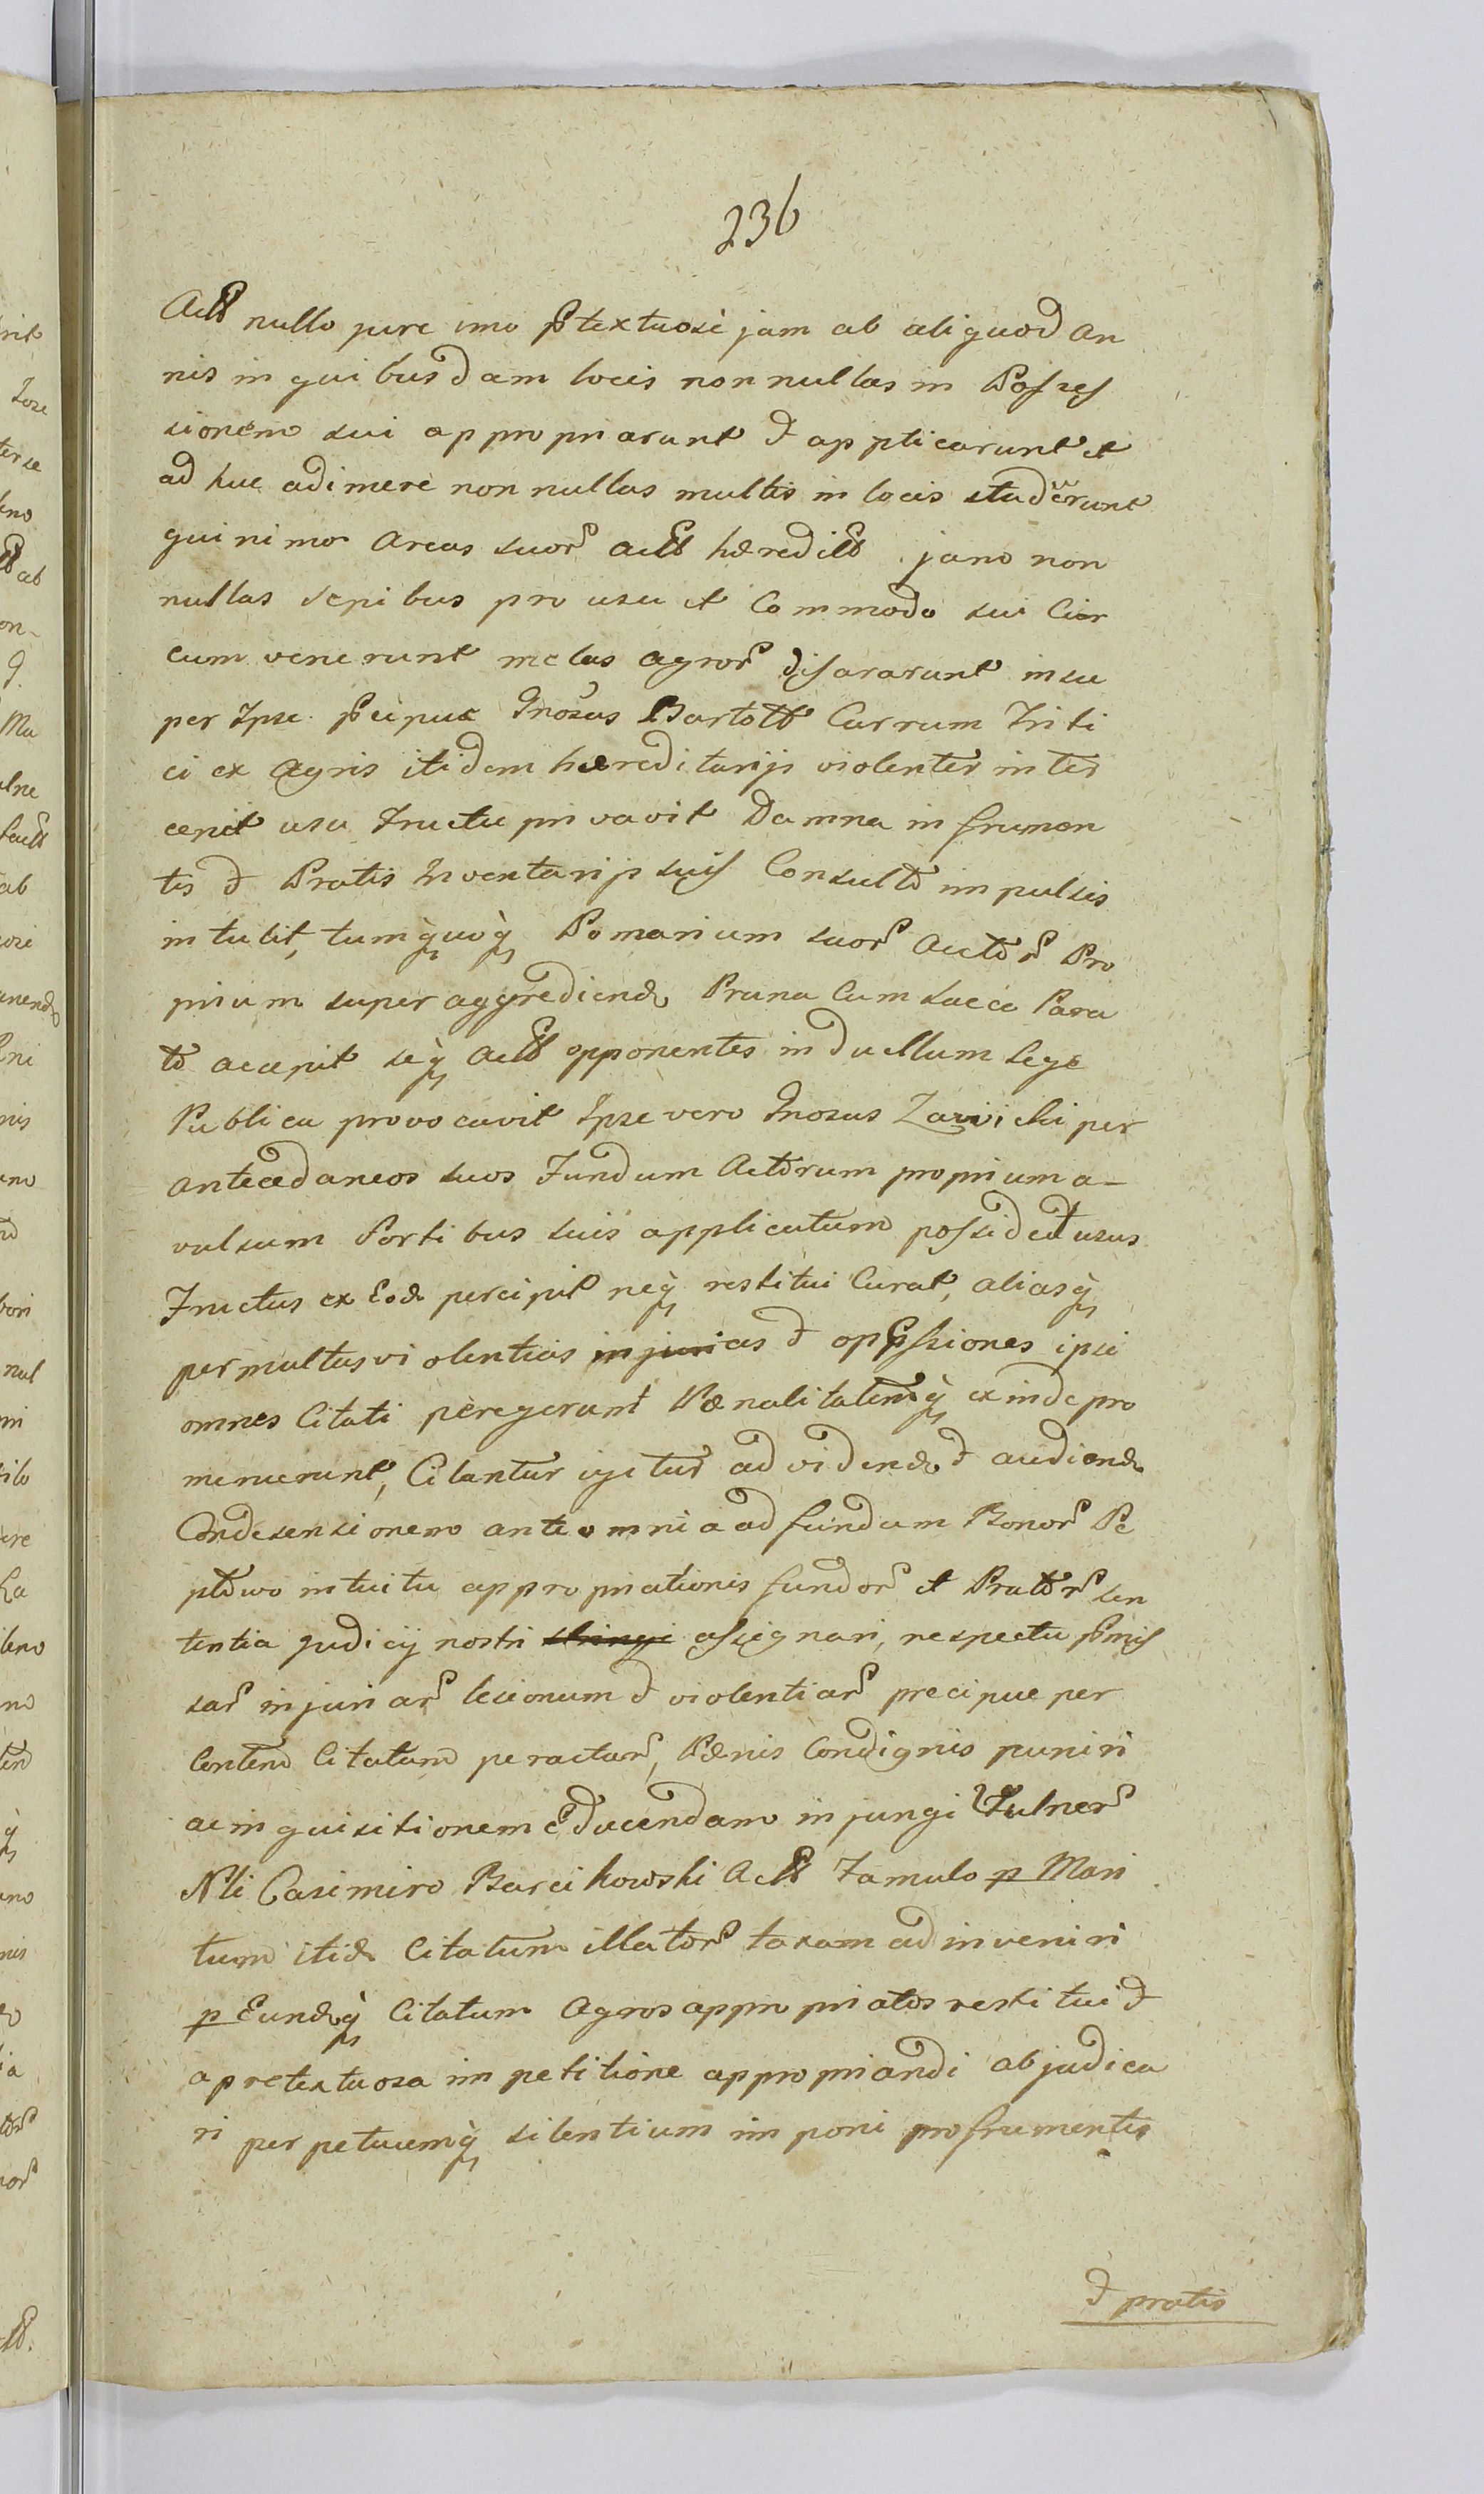 236
Actb nullo jure imo ptextuose jam ab aliquod an
nis in quibusdam locis nonnullas in Posses
sionem sui appropriarunt & applicarunt et
adhuc adimere nonnullas multis in locis studuerunt
quinimo Areas suor Actb hæreditb jam non
nullas sepibus pro usu et Commodo sui Cir
cum venerunt metas agror disararunt insu
per Ipse pcipue Gnosus Bartolt Currum Triti
ci ex Agris itidem hæreditarijs violenter inter
cepit usu Fructu privavit Damna in frumen
tis & Pratis Inventarijs suis Consulto impulsis
intulit, tumquoq Pomarium suor Actor Pro
prium superaggrediend Pruna Cum sacco Para
to accepit seq Actb opponentes in duellum Lege
Publica provocavit Ipse vero Gnosus Zawicki per
antecedaneos suos Fundum Actorum proprium a-
vulsum Sortibus suis applicatum possidet usus
Fructus ex Eod percipit neq restitui Curat, aliasq
permultas violentias injurias & oppssiones ipsi
omnes Citati peregerunt Pænalitatemq exinde pro
meruerunt, Citantur igitur ad vidend & audiend
Condesensionem ante omnia ad fundum Bonor Pe
ptowo intuitu appropriationis fundor et Prator sen
tentia Judicij nostri stringi assignari, respectu pmis
sar injuriar lesionum & violentiar precipue per
Conten Citatum peractar, Pænis Condignis puniri
ac inquisitionem educendam injungi Vulner
Nli Casimiro Barcikowski Actb Famulo p Mari
tum itid Citatum illator taxam adinveniri
p Eundq Citatum Agros appropriatos restitui &
a pretextuosa impetitione appropriandi abjudica
ri perpetuumq silentium imponi pro frumentis
& pratis